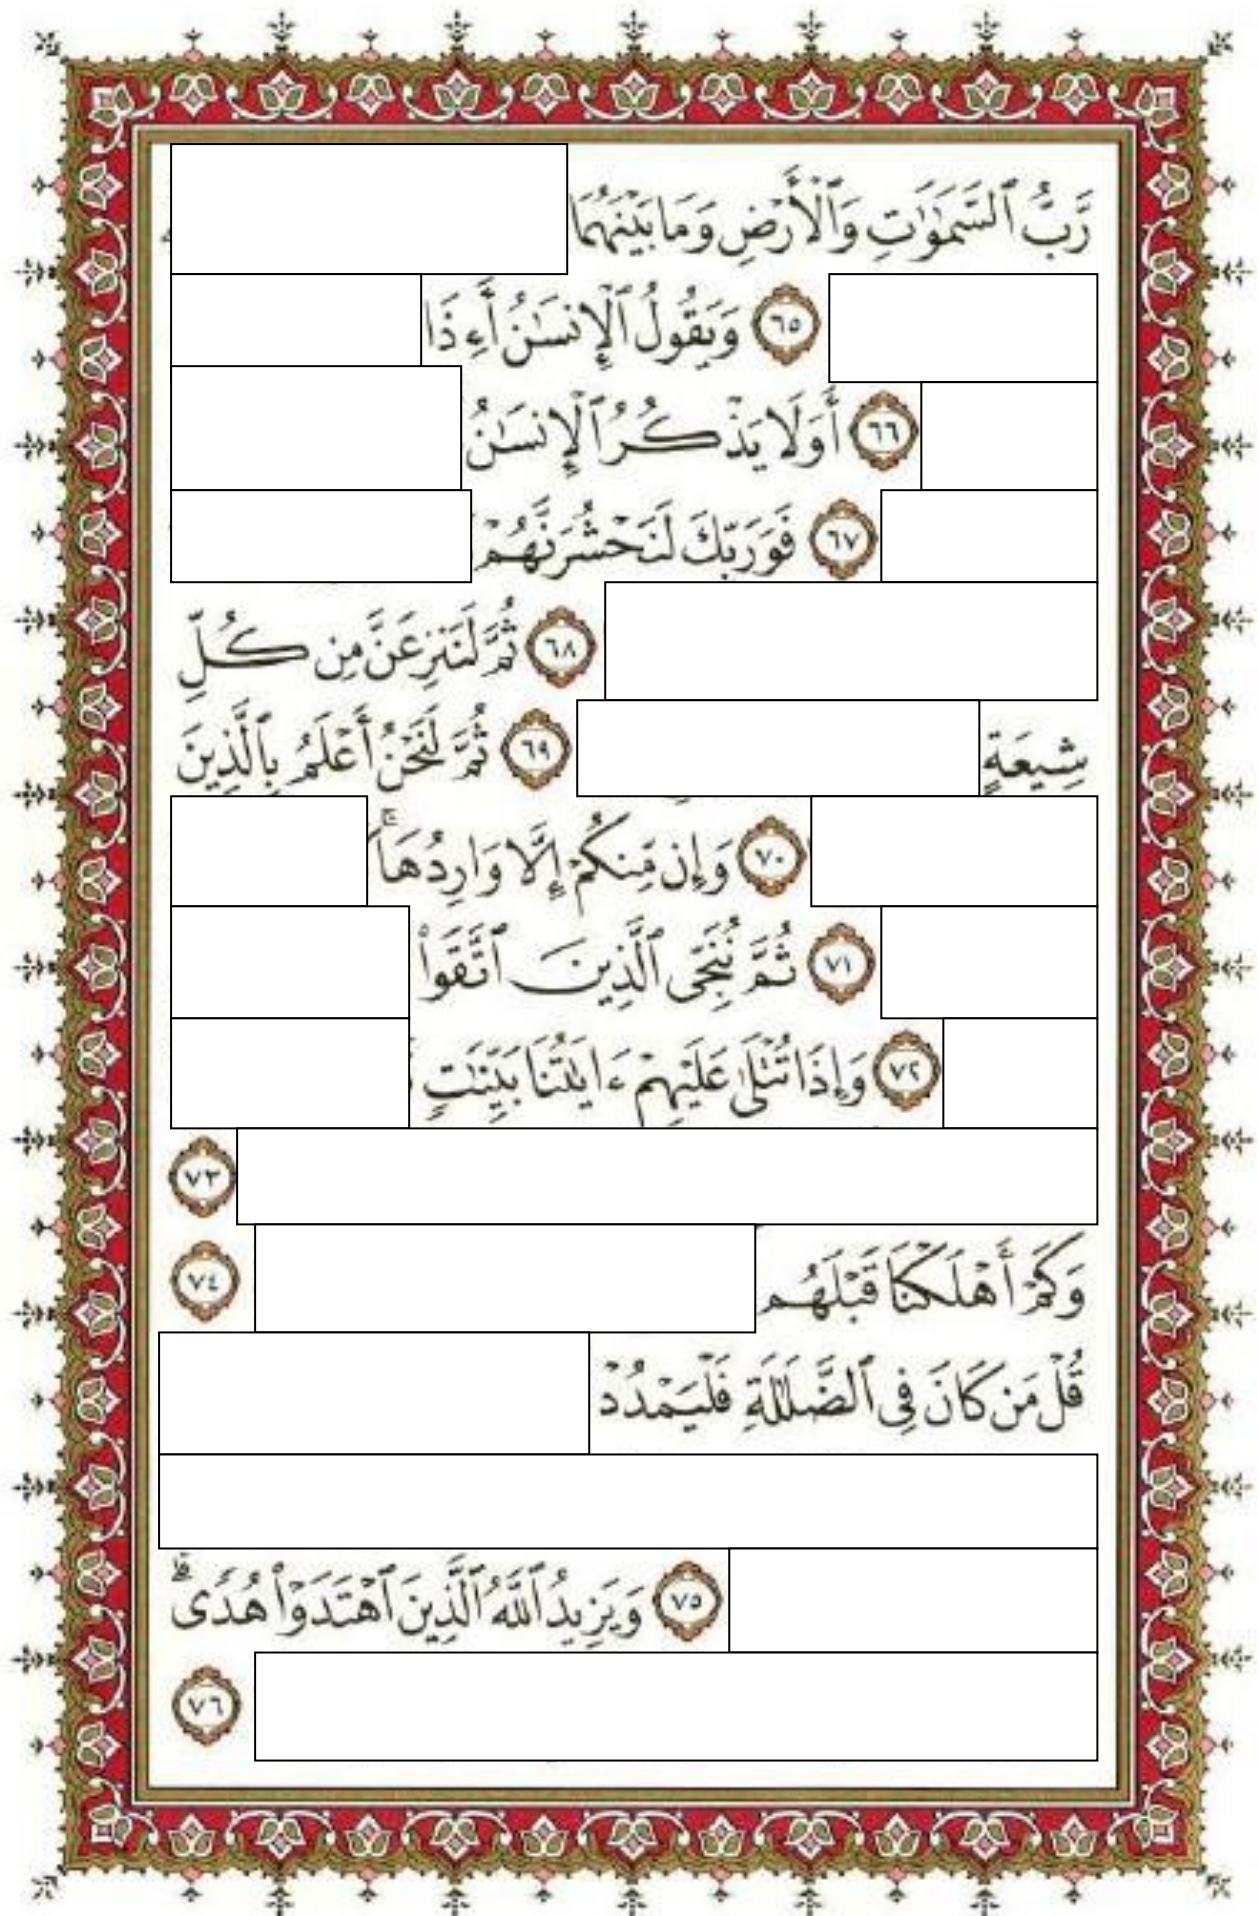 رَّبُّ ٱلسَّمَٰوَٰتِ وَٱلْأَرْضِ وَمَا بَيْنَهُمَا
٦٥ وَيَقُولُ ٱلْإِنسَٰنُ أَءِذَا
٦٦ أَوَلَا يَذْكُرُ ٱلْإِنسَٰنُ
٦٧ فَوَرَبِّكَ لَنَحْشُرَنَّهُمْ
٦٨ ثُمَّ لَنَنزِعَنَّ مِن كُلِّ
شِيعَةٍ ٦٩ ثُمَّ لَنَحْنُ أَعْلَمُ بِٱلَّذِينَ
٧٠ وَإِن مِّنكُمْ إِلَّا وَارِدُهَا ۚ
٧١ ثُمَّ نُنَجِّى ٱلَّذِينَ ٱتَّقَوا۟
٧٢ وَإِذَا تُتْلَىٰ عَلَيْهِمْ ءَايَٰتُنَا بَيِّنَٰتٍ
٧٣
وَكَمْ أَهْلَكْنَا قَبْلَهُم ٧٤
قُلْ مَن كَانَ فِى ٱلضَّلَٰلَةِ فَلْيَمْدُدْ
٧٥ وَيَزِيدُ ٱللَّهُ ٱلَّذِينَ ٱهْتَدَوْا۟ هُدًى ۗ
٧٦